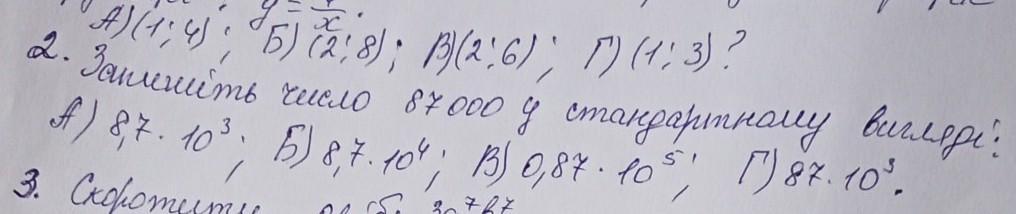 y = /x.
А) (1; 4); Б) (2; 8); В) (2; 6); Г) (1; 3)?
2. Запишіть число 87000 у стандартному вигляді:
А) 8,7 · 10³; Б) 8,7 · 10⁴; В) 0,87 · 10⁵; Г) 87 · 10³.
3. Скоротити